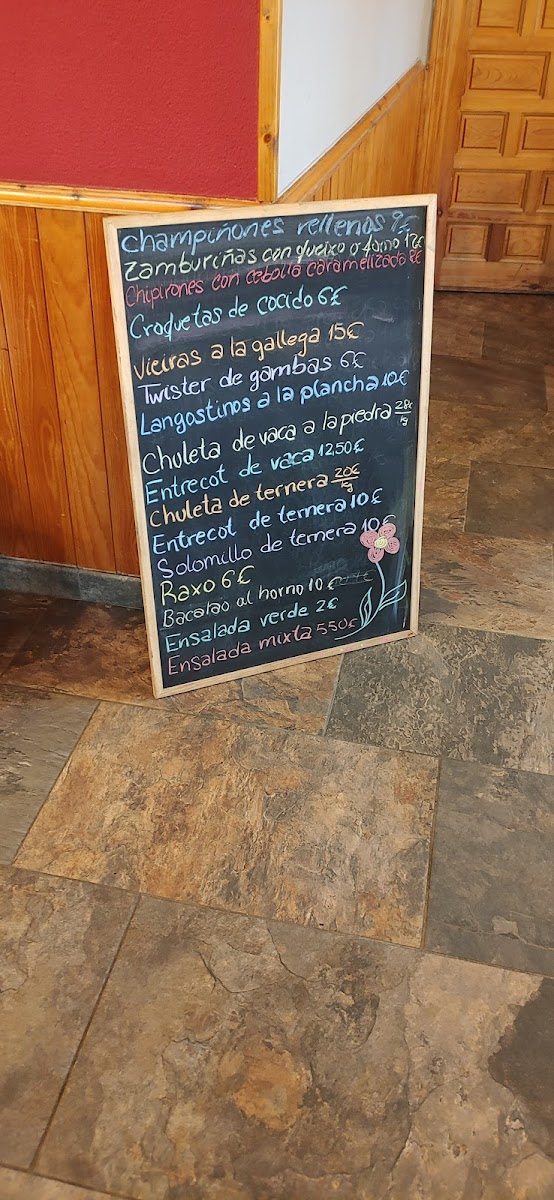 Champiñones rellenos 9€
Zamburiñas con queixo o jamo 12€
Chipirones con cebolla caramelizada 8€
Croquetas de cocido 6€
Vieiras a la gallega 15€
Twister de gambas 6€
Langostinos a la plancha 10€
Chuleta de vaca a la piedra 28€/kg
Entrecot de vaca 1250€
Chuleta de ternera 20€/kg
Entrecot de ternera 10€
Solomillo de ternera 10€
Raxo 6€
Bacalao al horno 10€
Ensalada verde 2€
Ensalada mixta 550€